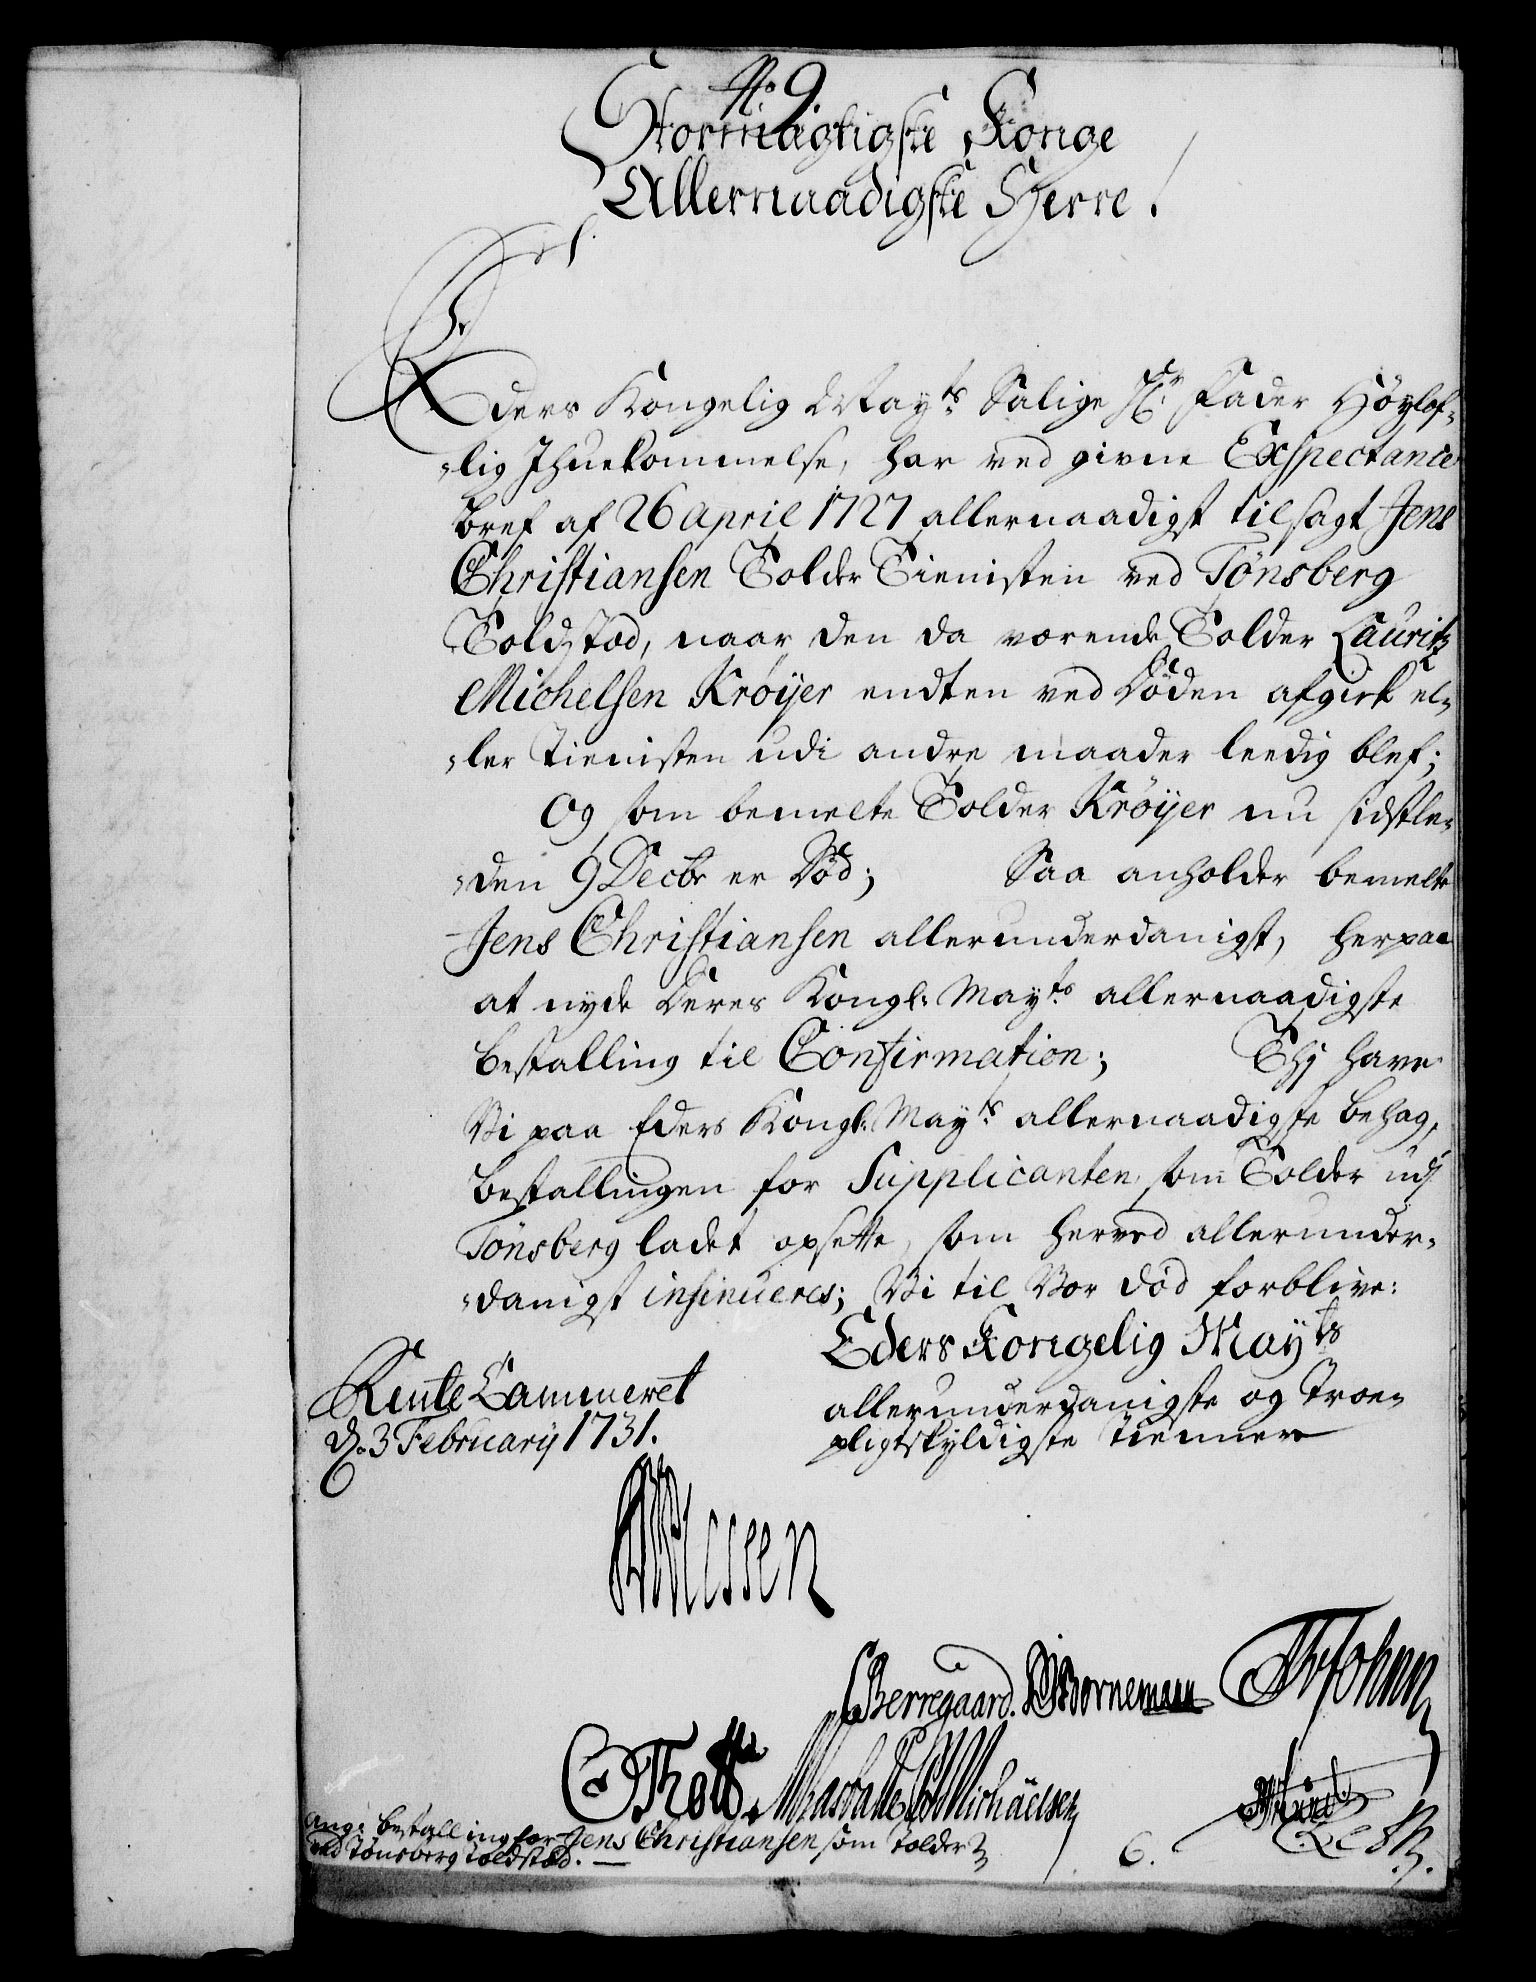 No 9.
Stormægtigste Konge
Allernaadigste Herre!
Eders Kongelig Mayts Salige Hr Fader Höylof-
-lig Ihuekommelse, har ved givne Exspectance
bref af 26 april 1727 allernaadigst tilsagt Jens
Christiansen Tolder Tienisten ved Tönsberg
Toldstæd, naar den da værende Tolder Lauritz
Michelsen Kröÿer endten ved Döden afgick el-
-ler Tienisten udi andre maader leedig blef;
Og som bemelte Tolder Kröÿer nu sidstle-
-den 9 Decbr er Död; Saa anholder bemelte
Jens Christiansen allerunderdanigst, herpaa
at nyde Deres Kongl: Mayts allernaadigste
bestalling til Confirmation; Thj have
Vi paa Eders Kongl: Mayts allernaadigste behag,
bestallingen for Supplicanten som Tolder udj
Tönsberg ladet opsette, som herved allerunder-
-danigst insinueres; Vi til Vor död forblive:
Eders Kongelig Mayts
allerunderdanigste og Troe-
pligtskyldigste Tiennere
Rente Cammeret
d. 3 February 1731.
CBerregaard. Bornemann
OThott.
Ang: bestalling for Jens Christiansen som Tolder
ved Tönsberg Toldstæd.
6.